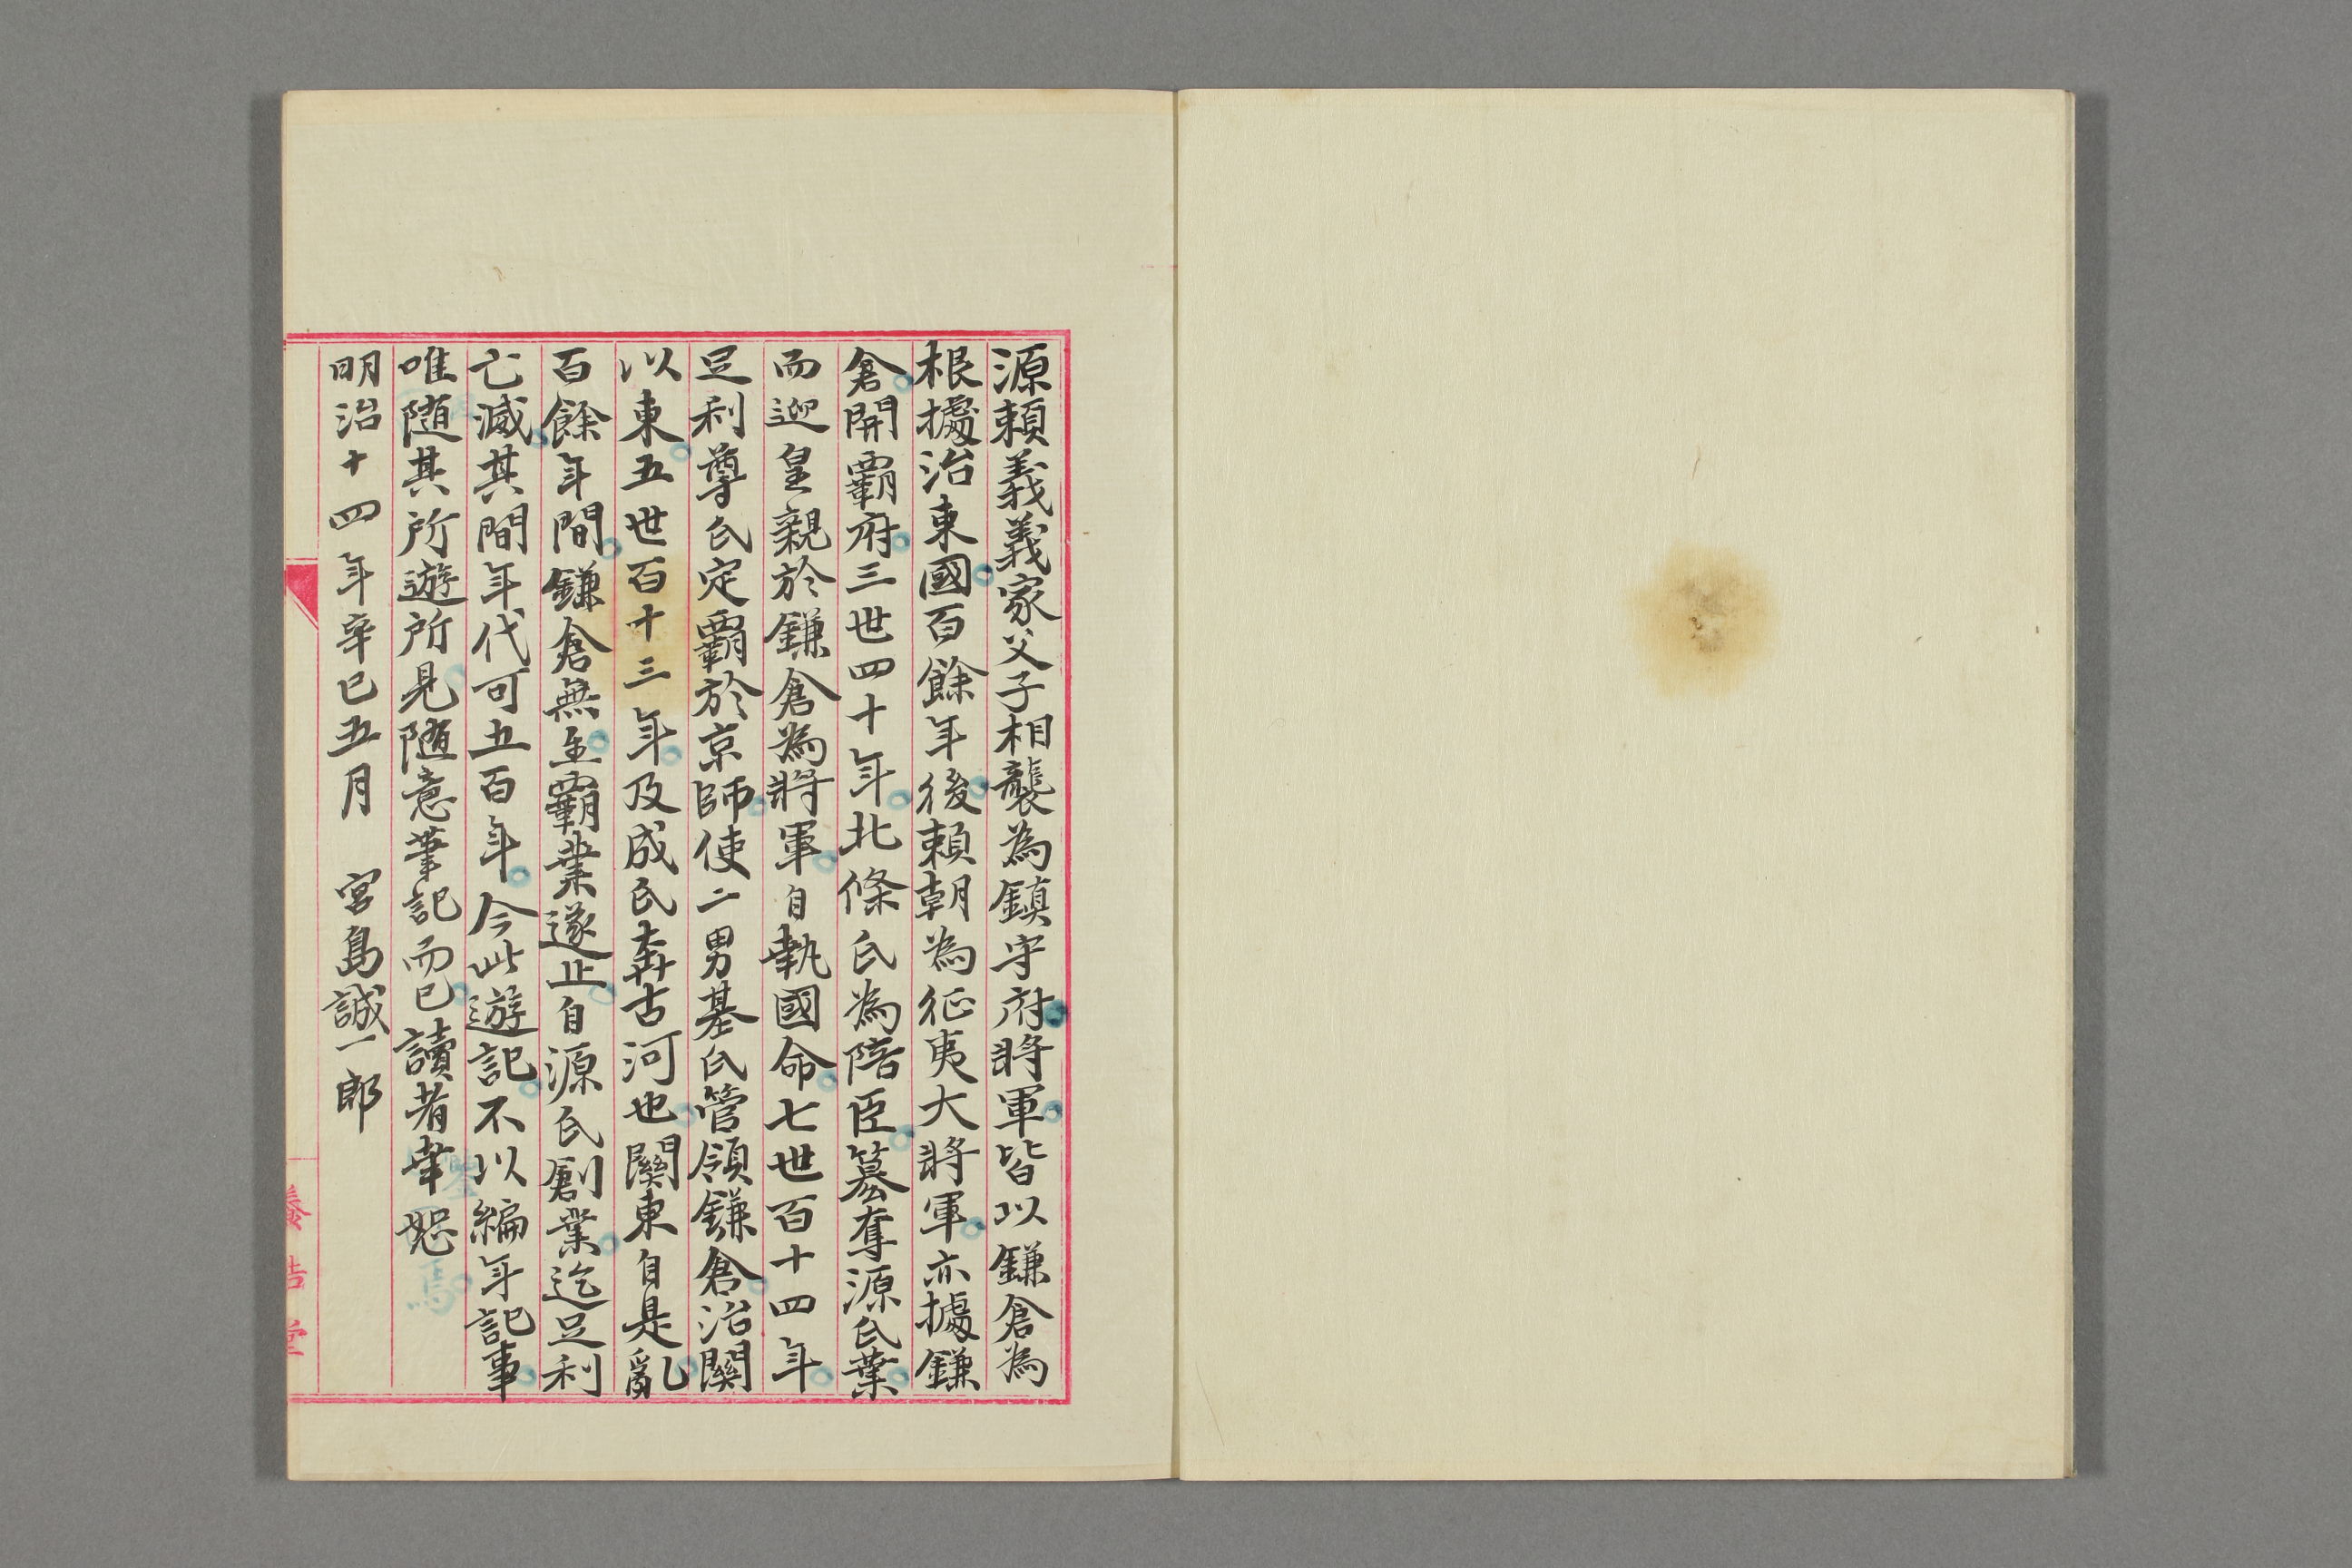 源頼義義家父子相襲為鎮守府將軍皆以鎌倉為
根據治東國百餘年後頼朝為征夷大將軍亦據鎌
倉開覇府三世四十年北條氏為陪臣簒奪源氏業
而迎皇親於鎌倉為將軍自執國命七世百十四年
足利尊氏定覇於京師使二男基氏管領鎌倉治關
以東五世百十三年及成氏奔古河也關東自是亂
百餘年間鎌倉無主覇業遂止自源氏創業迄足利
亡滅其間年代可五百年今此遊記不以編年記事
唯随其所遊所見随意筆記而已讀者幸恕
焉
明治十四年辛巳五月 宮島誠一郎
養浩堂